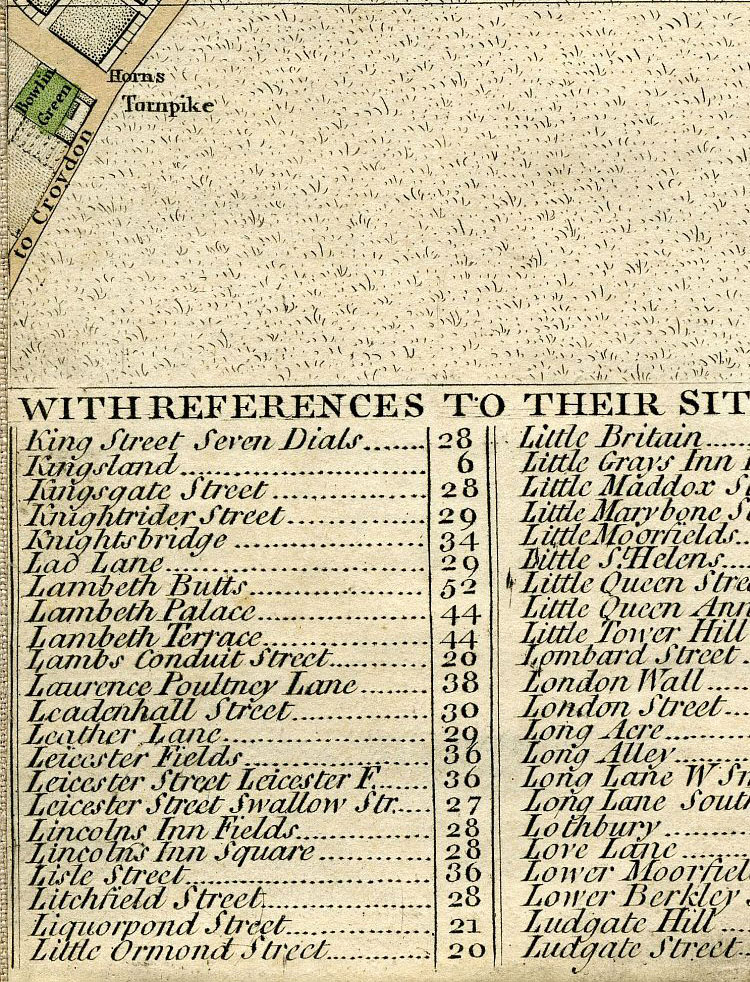 Horns
Turnpike
Bowlin
Green
to Croydon
WITH REFERENCES TO THEIR SIT
King Street Seven Dials....... 28
Kingsland........................ 6
Kingsgate Street................ 28
Knightrider Street............... 29
Knightsbridge.................... 34
Lad Lane......................... 29
Lambeth Butts.................... 52
Lambeth Palace................... 44
Lambeth Terrace.................. 44
Lambs Conduit Street............. 20
Laurence Poultney Lane........ 38
Leadenhall Street................ 30
Leather Lane..................... 29
Leicester Fields................. 36
Leicester Street Leicester F..... 36
Leicester Street Swallow Str.... 27
Lincolns Inn Fields.............. 28
Lincolns Inn Square.............. 28
Lisle Street..................... 36
Litchfield Street................ 28
Liquorpond Street................ 21
Little Ormond Street............. 20
Little Britain.....
Little Grays Inn
Little Maddox S
Little Marybone S
Little Moorfields..
Little St. Helens....
Little Queen Stree
Little Queen Ann
Little Tower Hill
Lombard Street .
London Wall ....
London Street....
Long Acre........
Long Alley.......
Long Lane W Sm
Long Lane South
Lothbury.........
Love Lane .......
Lower Moorfiel
Lower Berkley
Ludgate Hill ...
Ludgate Street..